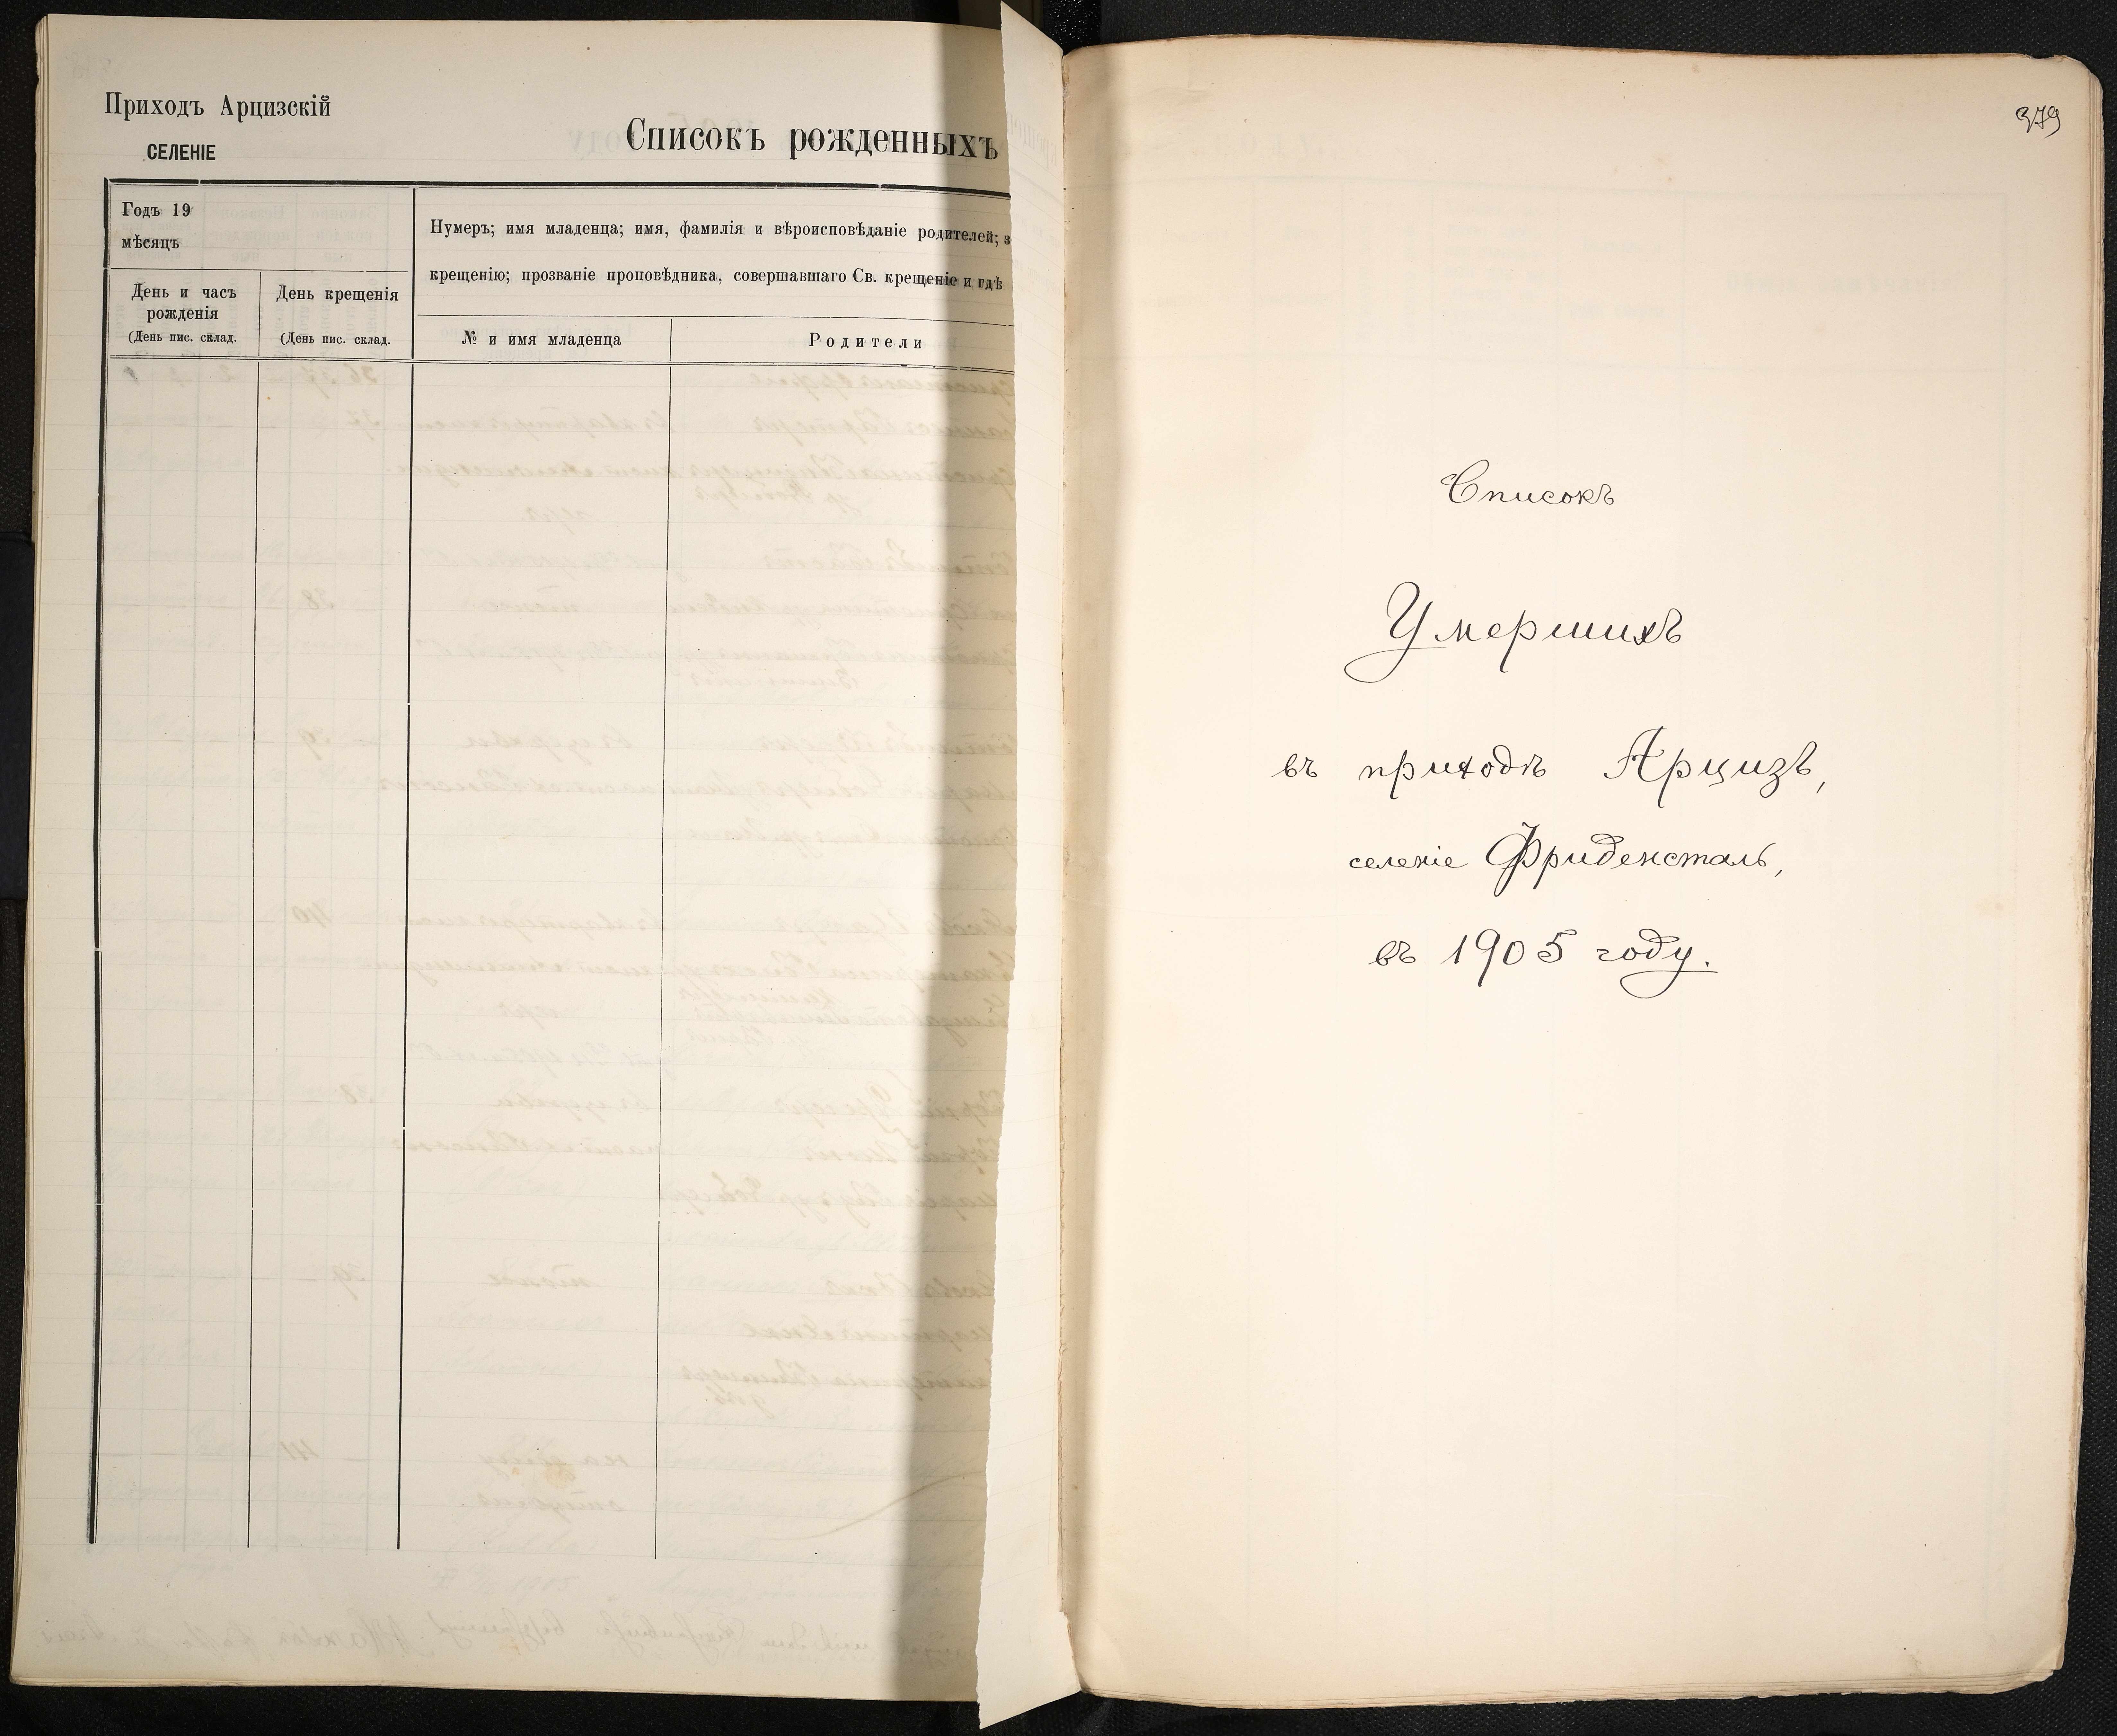 Приходъ Арцизскій
СЕЛЕНІЕ
Списокъ рожденныхъ
Годъ 19
мѣсяцъ
Нумеръ; имя младенца; имя, фамилія и вѣроисповѣданіе родителей; з
крещенію; прозваніе проповѣдника, совершавшаго Св. крещеніе и гдѣ
День и часъ
рожденія
(День пис. склад.
День крещенія
(День пис. склад.
№ и имя младенца
Родители
379
Списокъ
Умершихъ
въ приходѣ Арцизъ,
селеніе Фриденсталь,
въ 1905 году.